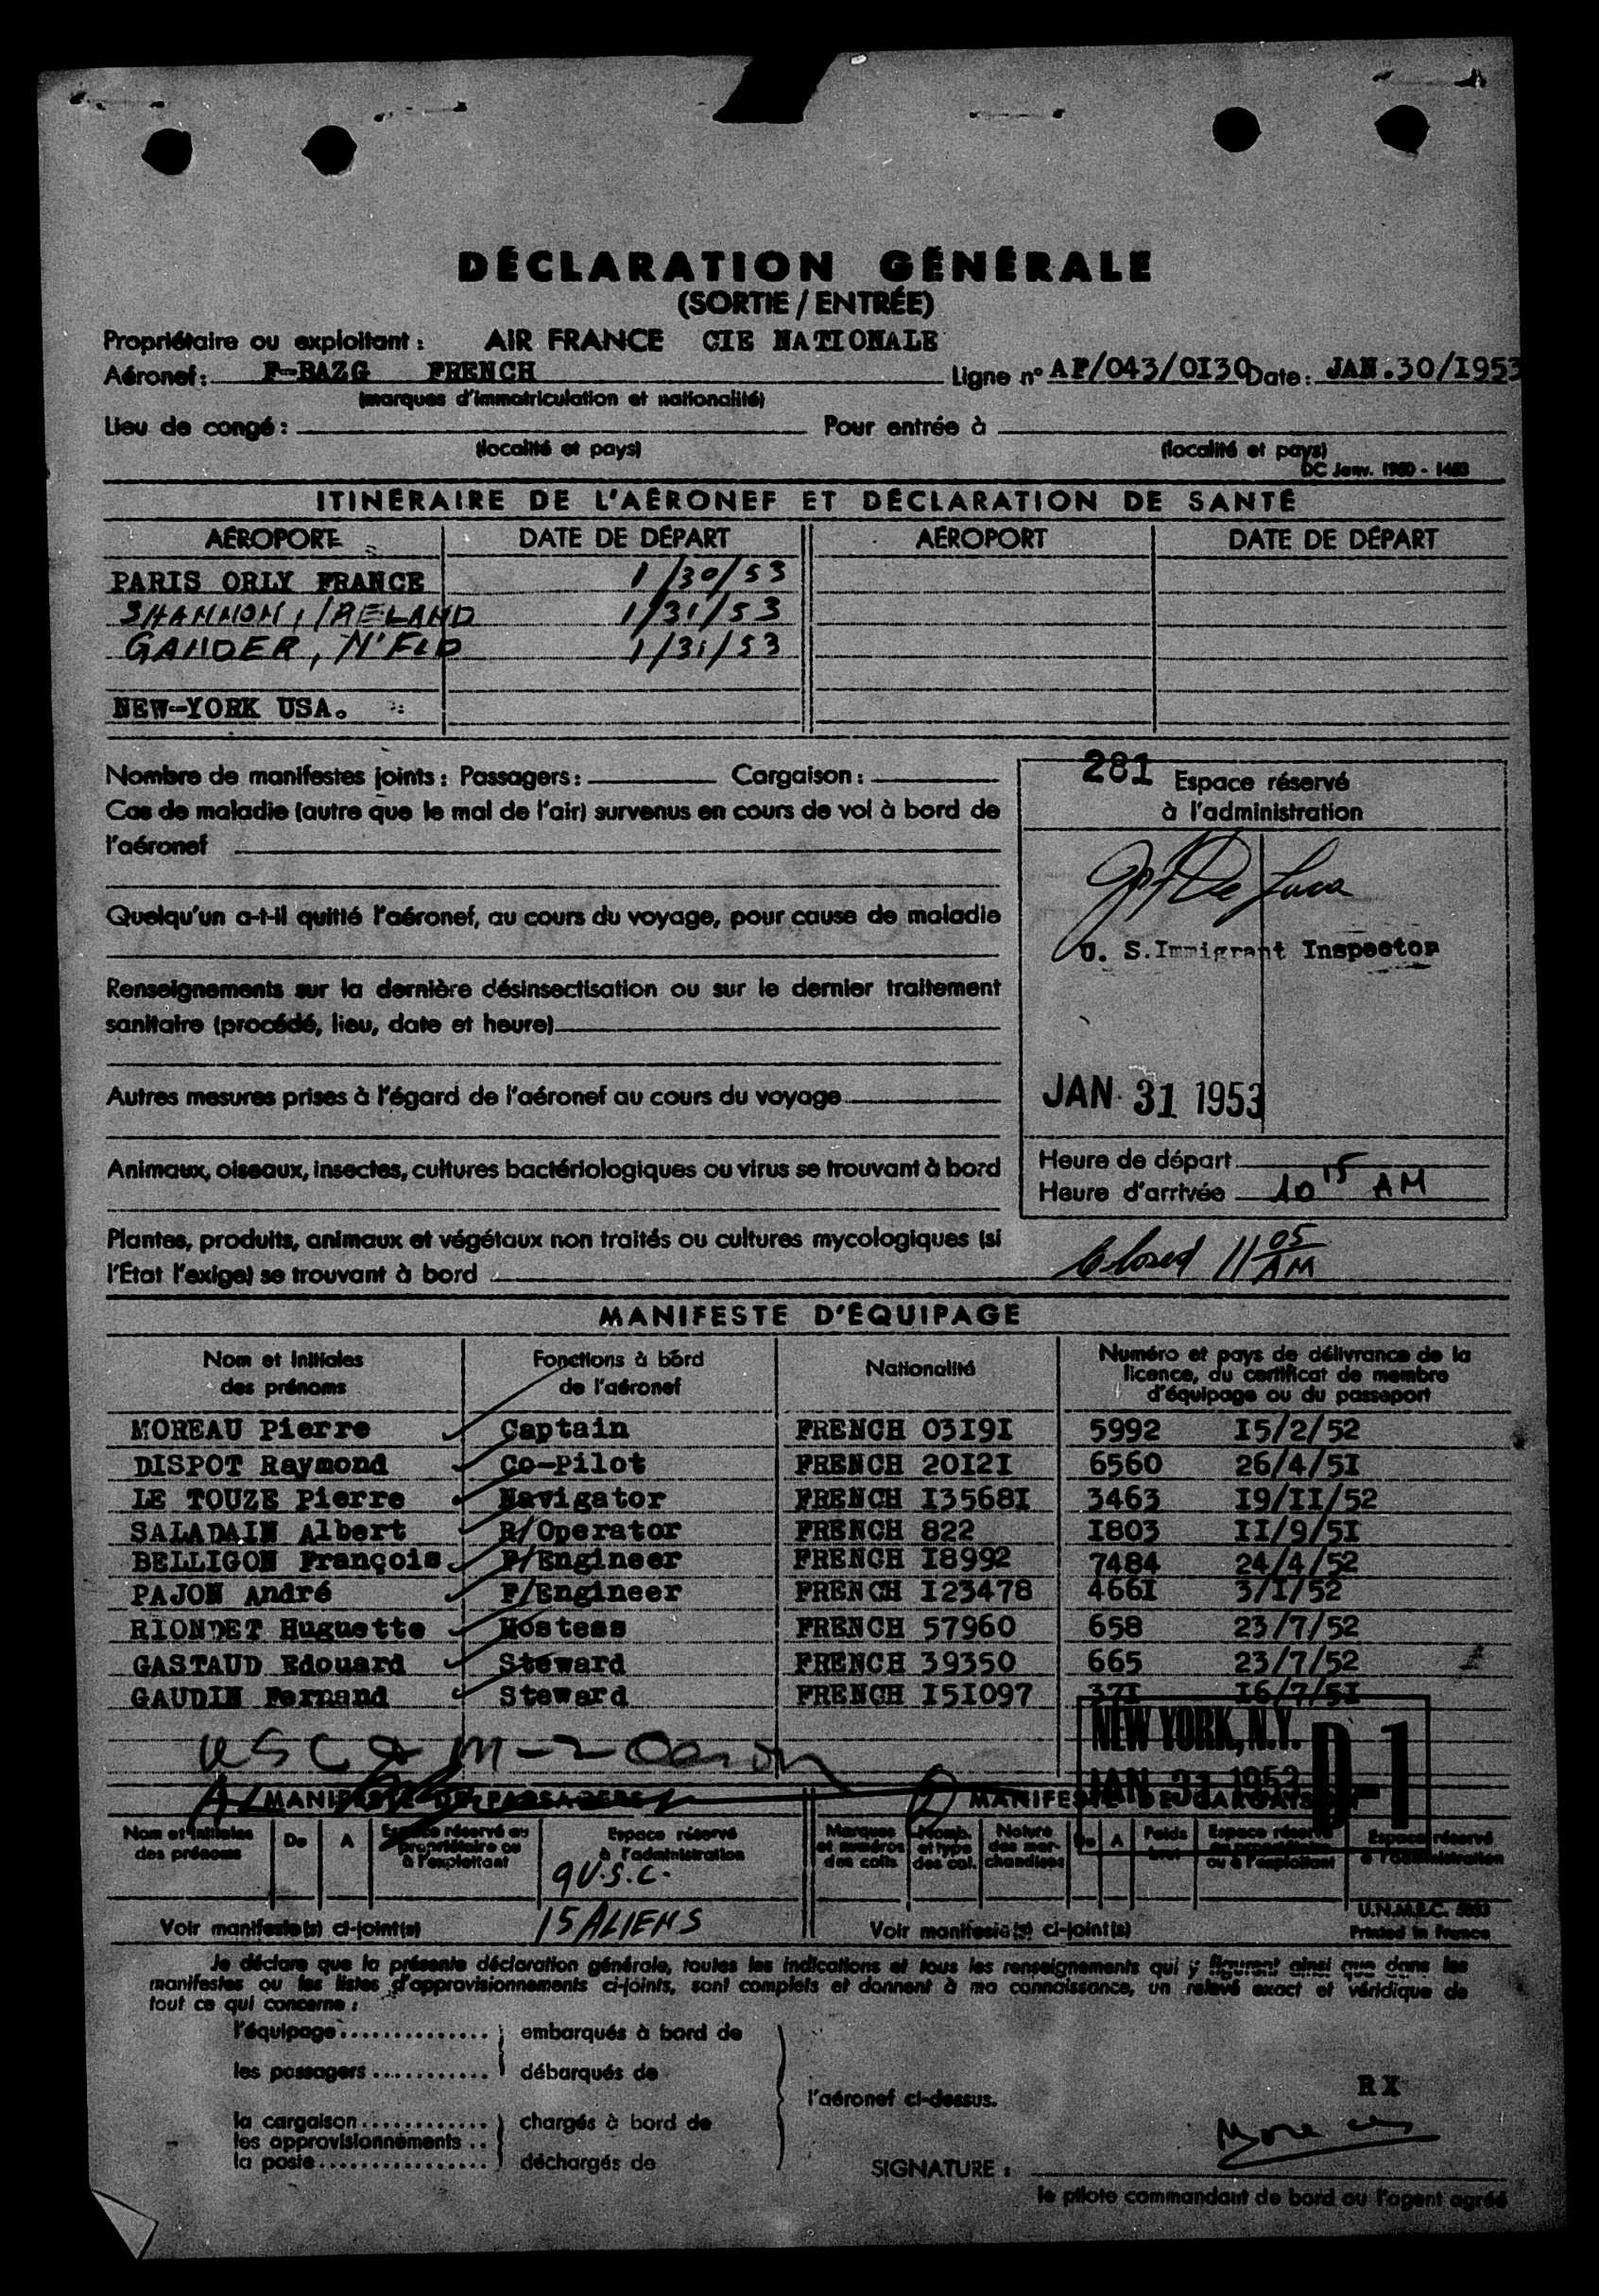 DÉCLARATION GÉNÉRALE
(SORTIE / ENTRÉE)
Propriétaire ou exploitant : AIR FRANCE CIE NATIONALE
Aéronef : F-BAZG FRENCH Ligne n° AF/043/0I30 Date : JAN.30/I953
(marques d'immatriculation et nationalité)
Lieu de congé : Pour entrée à
(localité et pays) (localité et pays)
DC Janv. 1950 - 1483
ITINÉRAIRE DE L'AÉRONEF ET DÉCLARATION DE SANTÉ
AÉROPORT DATE DE DÉPART AÉROPORT DATE DE DÉPART
PARIS ORLY FRANCE 1/30/53
SHANNON, IRELAND 1/31/53
GANDER, N'FLD 1/31/53
NEW-YORK USA.
Nombre de manifestes joints : Passagers : Cargaison :
Cas de maladie (autre que le mal de l'air) survenus en cours de vol à bord de
l'aéronef
Quelqu'un a-t-il quitté l'aéronef, au cours du voyage, pour cause de maladie
Renseignements sur la dernière désinsectisation ou sur le dernier traitement
sanitaire (procédé, lieu, date et heure)
Autres mesures prises à l'égard de l'aéronef au cours du voyage
Animaux, oiseaux, insectes, cultures bactériologiques ou virus se trouvant à bord
Plantes, produits, animaux et végétaux non traités ou cultures mycologiques (si
l'État l'exige) se trouvant à bord
281 Espace réservé
à l'administration
De Luca
U. S. Immigrant Inspector
JAN 31 1953
Heure de départ
Heure d'arrivée 10 15 AM
Closed 11 05 AM
MANIFESTE D'ÉQUIPAGE
Nom et initiales des prénoms Fonctions à bord de l'aéronef Nationalité Numéro et pays de délivrance de la licence, du certificat de membre d'équipage ou du passeport
MOREAU Pierre Captain FRENCH 03I9I 5992 I5/2/52
DISPOT Raymond Co-Pilot FRENCH 20I2I 6560 26/4/5I
LE TOUZE Pierre Navigator FRENCH I3568I 3463 I9/II/52
SALADAIN Albert R/Operator FRENCH 822 I803 II/9/5I
BELLIGON François F/Engineer FRENCH I8992 7484 24/4/52
PAJON André F/Engineer FRENCH I23478 466I 3/I/52
RIONDET Huguette Hostess FRENCH 57960 658 23/7/52
GASTAUD Edouard Steward FRENCH 39350 665 23/7/52
GAUDIN Fernand Steward FRENCH I5I097 37I I6/7/5I
NEW YORK, N.Y.
JAN 31 1953
D-1
MANIFESTE DE PASSAGERS MANIFESTE DE CARGAISON
Nom et initiales des prénoms De A Espace réservé au propriétaire ou à l'exploitant Espace réservé à l'administration
Marques et numéros des colis Nomb. et type des col. Nature des mar-chandises De A Poids brut Espace réservé au propriétaire ou à l'exploitant Espace réservé à l'administration
9 U.S.C.
15 ALIENS
Voir manifeste(s) ci-joint(s) Voir manifeste(s) ci-joint(s)
Printed in France
Je déclare que la présente déclaration générale, toutes les indications et tous les renseignements qui y figurent ainsi que dans les
manifestes ou les listes d'approvisionnements ci-joints, sont complets et donnent à ma connaissance, un relevé exact et véridique de
tout ce qui concerne :
l'équipage............... embarqués à bord de
les passagers............ débarqués de
l'aéronef ci-dessus.
la cargaison............. chargés à bord de
les approvisionnements ..
la poste................. déchargés de
RX
Moreau
SIGNATURE :
le pilote commandant de bord ou l'agent agréé